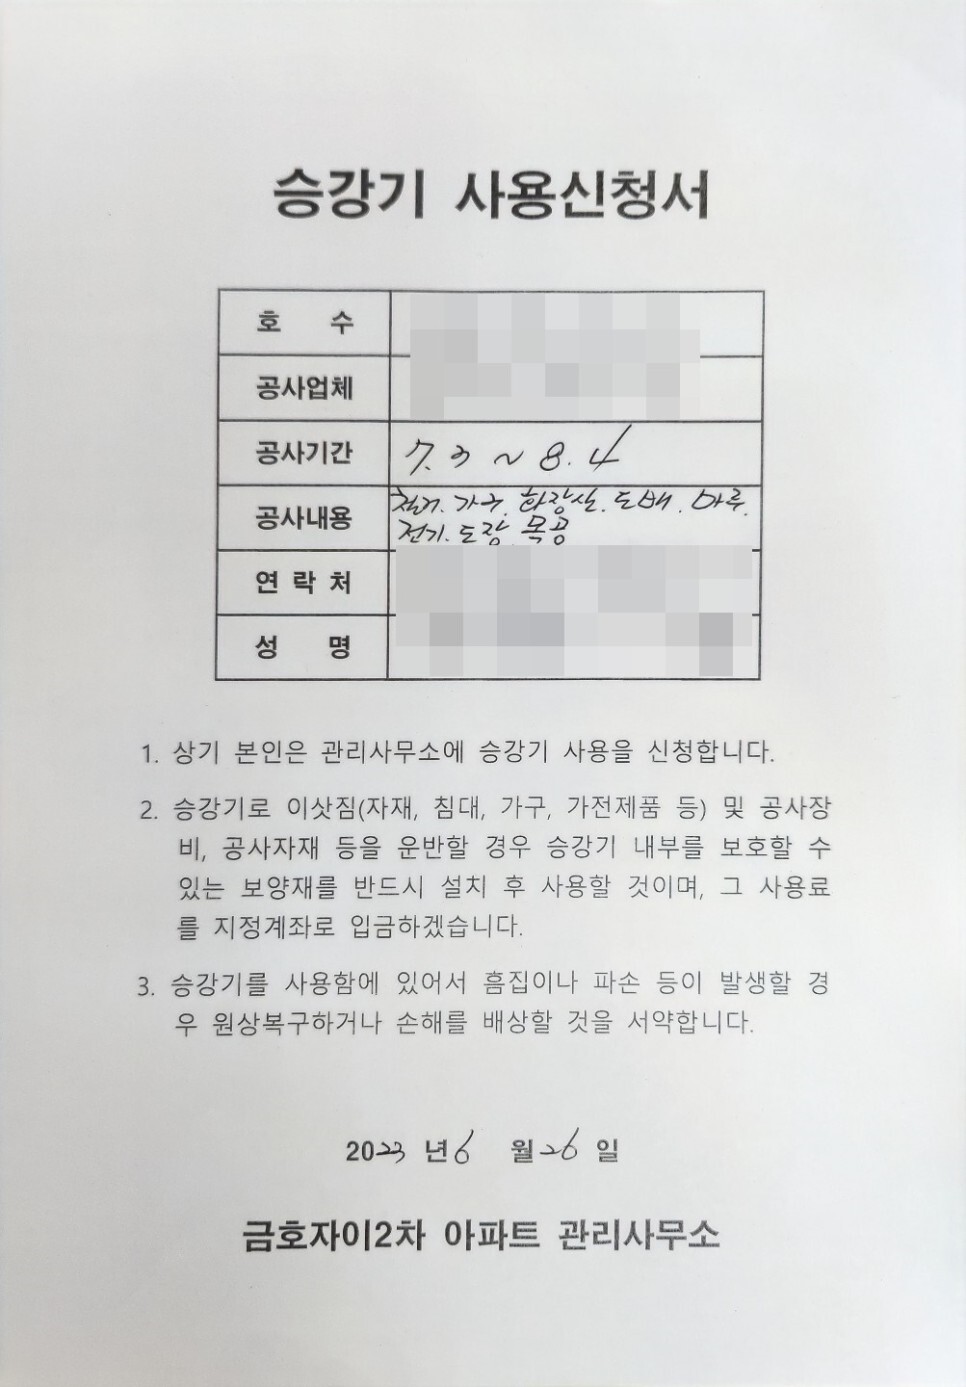 승강기 사용신청서
호 수
공사업체
공사기간 7.3 ~ 8.4
공사내용 철거. 가구. 화장실. 도배. 마루.
전기. 도장. 목공
연 락 처
성 명
1. 상기 본인은 관리사무소에 승강기 사용을 신청합니다.
2. 승강기로 이삿짐(자재, 침대, 가구, 가전제품 등) 및 공사장
비, 공사자재 등을 운반할 경우 승강기 내부를 보호할 수
있는 보양재를 반드시 설치 후 사용할 것이며, 그 사용료
를 지정계좌로 입금하겠습니다.
3. 승강기를 사용함에 있어서 흠집이나 파손 등이 발생할 경
우 원상복구하거나 손해를 배상할 것을 서약합니다.
2023 년 6 월 26 일
금호자이2차 아파트 관리사무소